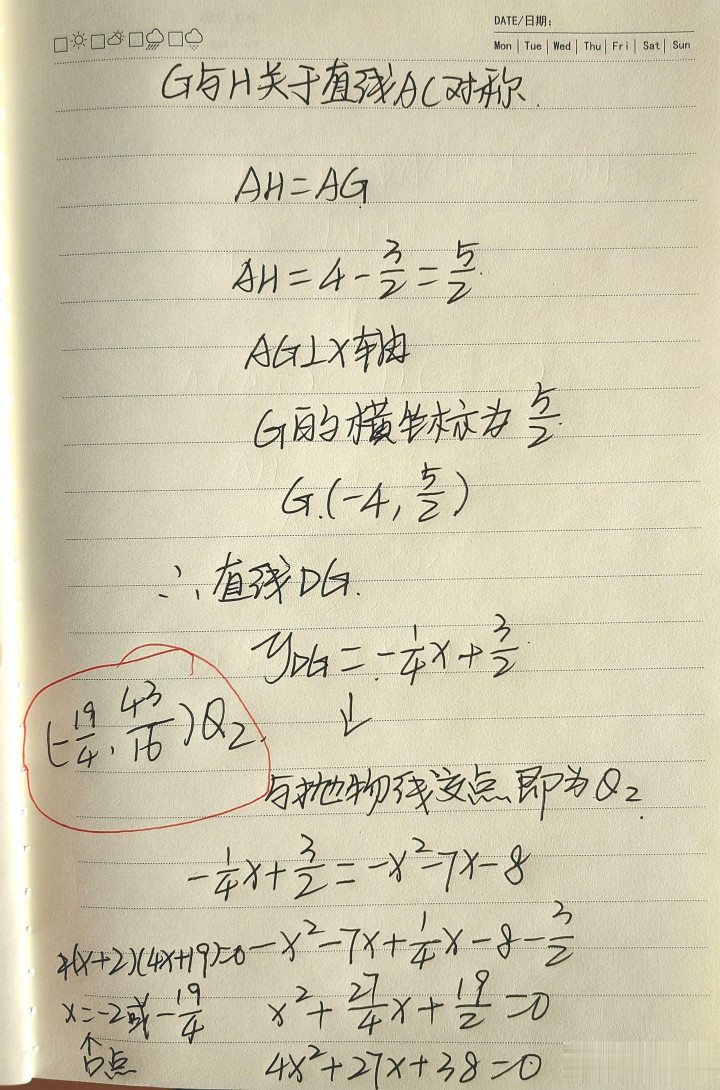 DATE/日期:
Mon | Tue | Wed | Thu | Fri | Sat | Sun
G与H关于直线AC对称.
AH=AG
AH=4-\frac{3}{2}=\frac{5}{2}.
AG⊥X轴
G的横坐标为\frac{5}{2}.
G.(-4,\frac{5}{2})
∴直线DG.
y_{DG}=-\frac{1}{4}x+\frac{3}{2}.
↓
(-\frac{19}{4},\frac{43}{16})Q_2.
与抛物线交点即为Q_2.
-\frac{1}{4}x+\frac{3}{2}=-x^2-7x-8
-x^2-7x+\frac{1}{4}x-8-\frac{3}{2}
x^2+\frac{27}{4}x+\frac{19}{2}=0
4x^2+27x+38=0
(x+2)(4x+19)=0
x=-2或-\frac{19}{4}
↑
点